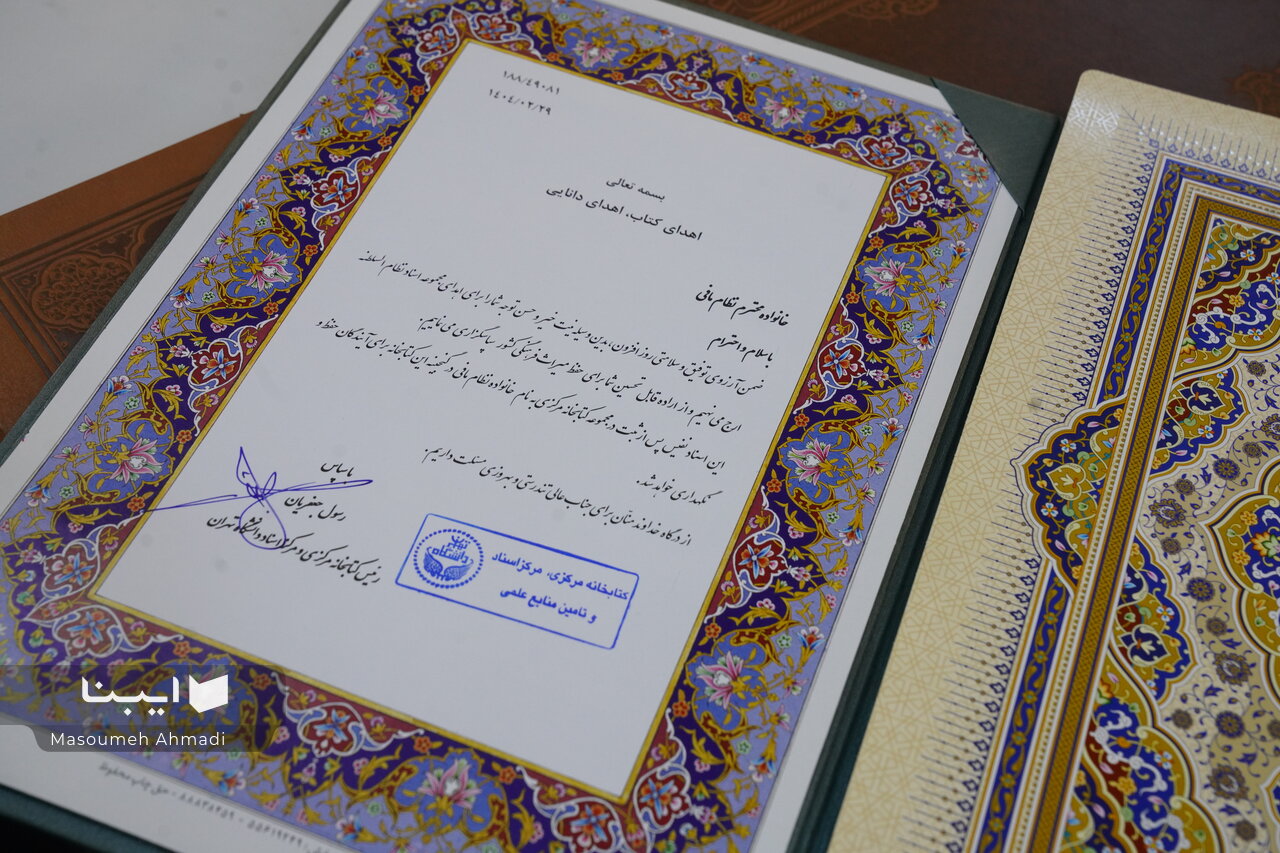 ۱۸۸/۴۹۰۸۱
۱۴۰۴/۰۲/۲۹
بسمه تعالی
اهدای کتاب، اهدای دانایی
خانواده محترم نظام مافی
با سلام و احترام
ضمن آرزوی توفیق و سلامتی روزافزون، بدین وسیله نیت خیر و حسن توجه شما را برای اهدای مجموعه اسناد نظام السلطنه
ارج می نهیم و از اراده قابل تحسین شما برای حفظ میراث فرهنگی کشور سپاسگزاری می نماییم.
این اسناد نفیس پس از ثبت در مجموعه کتابخانه مرکزی به نام خانواده نظام مافی در گنجینه این کتابخانه برای آیندگان حفظ و
نگهداری خواهد شد.
از درگاه خداوند منّان برای جناب عالی تندرستی و بهروزی مسئلت داریم.
با سپاس
رسول جعفریان
رئیس کتابخانه مرکزی و مرکز اسناد دانشگاه تهران
دانشگاه تهران
کتابخانه مرکزی، مرکز اسناد
و تامین منابع علمی
ایبنا
Masoumeh Ahmadi
۸۸۸۳۸۳۵۹ - حق چاپ محفوظ